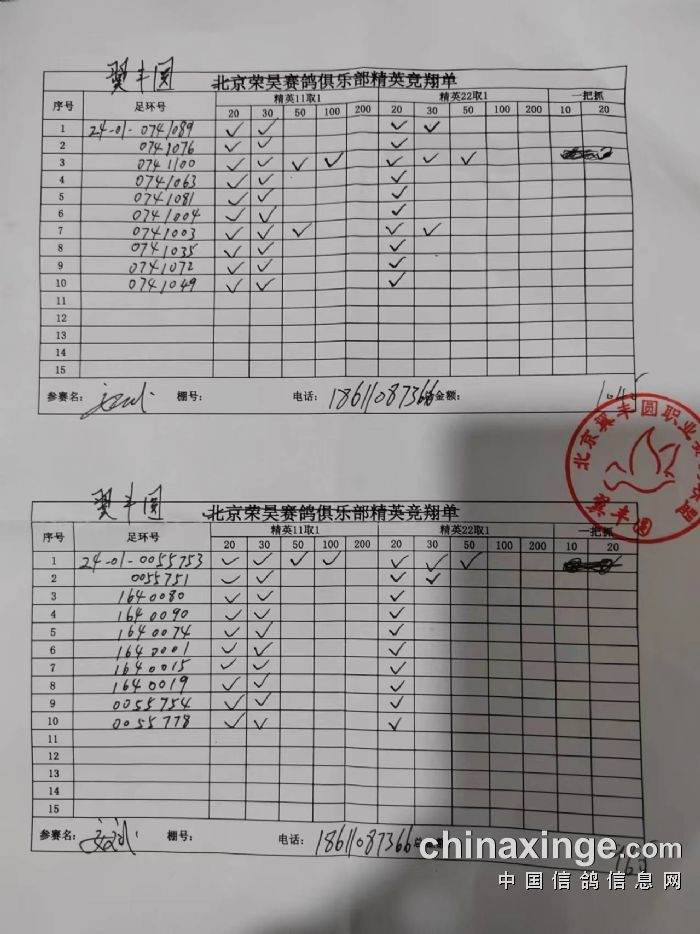 翼丰圆
北京荣昊赛鸽俱乐部精英竞翔单
序号 足环号 精英11取1 精英22取1 一把抓
20 30 50 100 200 20 30 50 100 200 10 20
1 24-01-0741089 ✓ ✓ ✓ ✓
2 0741076 ✓ ✓ ✓
3 0741100 ✓ ✓ ✓ ✓ ✓ ✓ ✓
4 0741063 ✓ ✓ ✓
5 0741081 ✓ ✓ ✓
6 0741004 ✓ ✓ ✓
7 0741003 ✓ ✓ ✓ ✓ ✓
8 0741035 ✓ ✓ ✓
9 0741072 ✓ ✓ ✓
10 0741049 ✓ ✓ ✓
11
12
13
14
15
参赛名: 棚号: 电话: 18611087366 总金额:
北京翼丰圆职业赛
翼丰圆
翼丰圆
北京荣昊赛鸽俱乐部精英竞翔单
序号 足环号 精英11取1 精英22取1 一把抓
20 30 50 100 200 20 30 50 100 200 10 20
1 24-01-0055753 ✓ ✓ ✓ ✓ ✓ ✓ ✓
2 0055751 ✓ ✓ ✓ ✓
3 1640080 ✓ ✓ ✓
4 1640090 ✓ ✓ ✓
5 1640074 ✓ ✓ ✓
6 1640001 ✓ ✓ ✓
7 1640015 ✓ ✓ ✓
8 1640019 ✓ ✓ ✓
9 0055754 ✓ ✓ ✓
10 0055778 ✓ ✓ ✓
11
12
13
14
15
参赛名: 棚号: 电话: 18611087366
chinaxinge.com
中国信鸽信息网